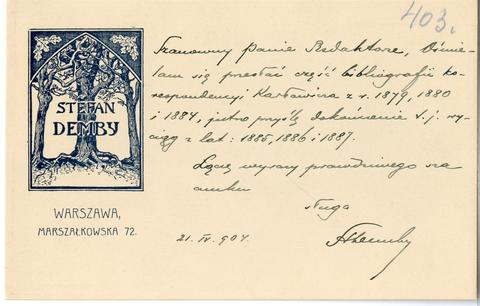 403.
STEFAN
DEMBY
WARSZAWA,
MARSZAŁKOWSKA 72.
Szanowny Panie Redaktorze, Ośmie-
lam się przesłać część bibliografii ko-
respondencyi Karłowicza z r. 1879, 1880
i 1884, jutro prześlę dokończenie t. j. wy-
ciąg z lat: 1885, 1886 i 1887.
Łączę wyrazy prawdziwego sza
cunku
sługa
StDemby
21. IV. 904.